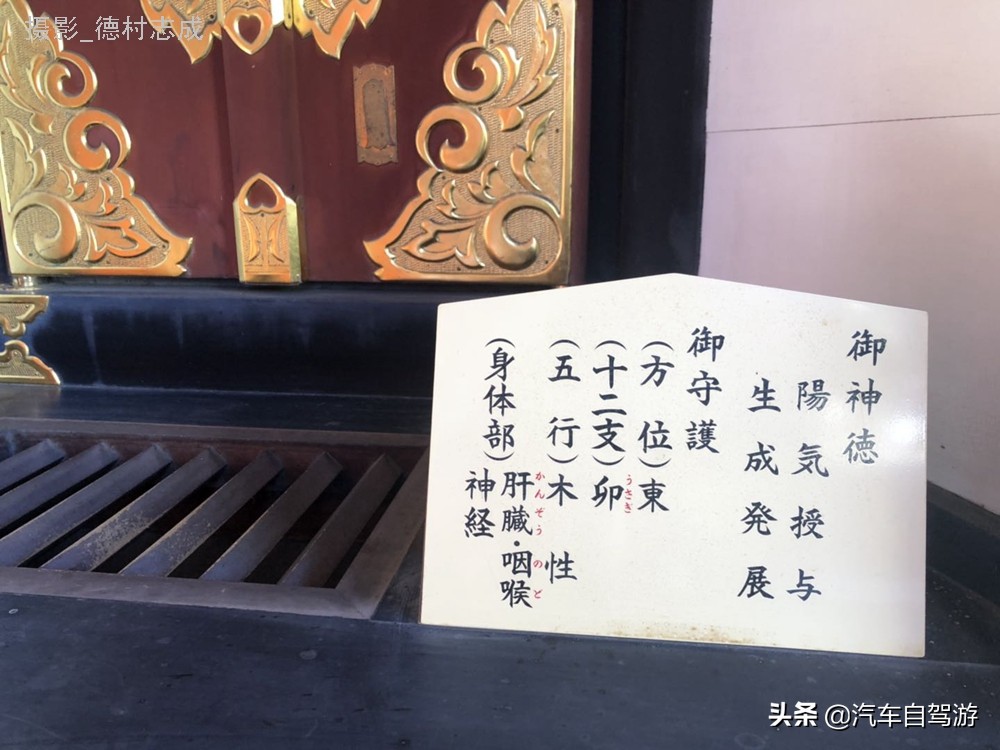 摄影_德村志成
御神徳
陽気授与
生成発展
御守護
(方位)東
(十二支)卯
うさぎ
(五行)木性
(身体部)肝臓・咽喉
かんぞう のど
神経
头条 @汽车自驾游